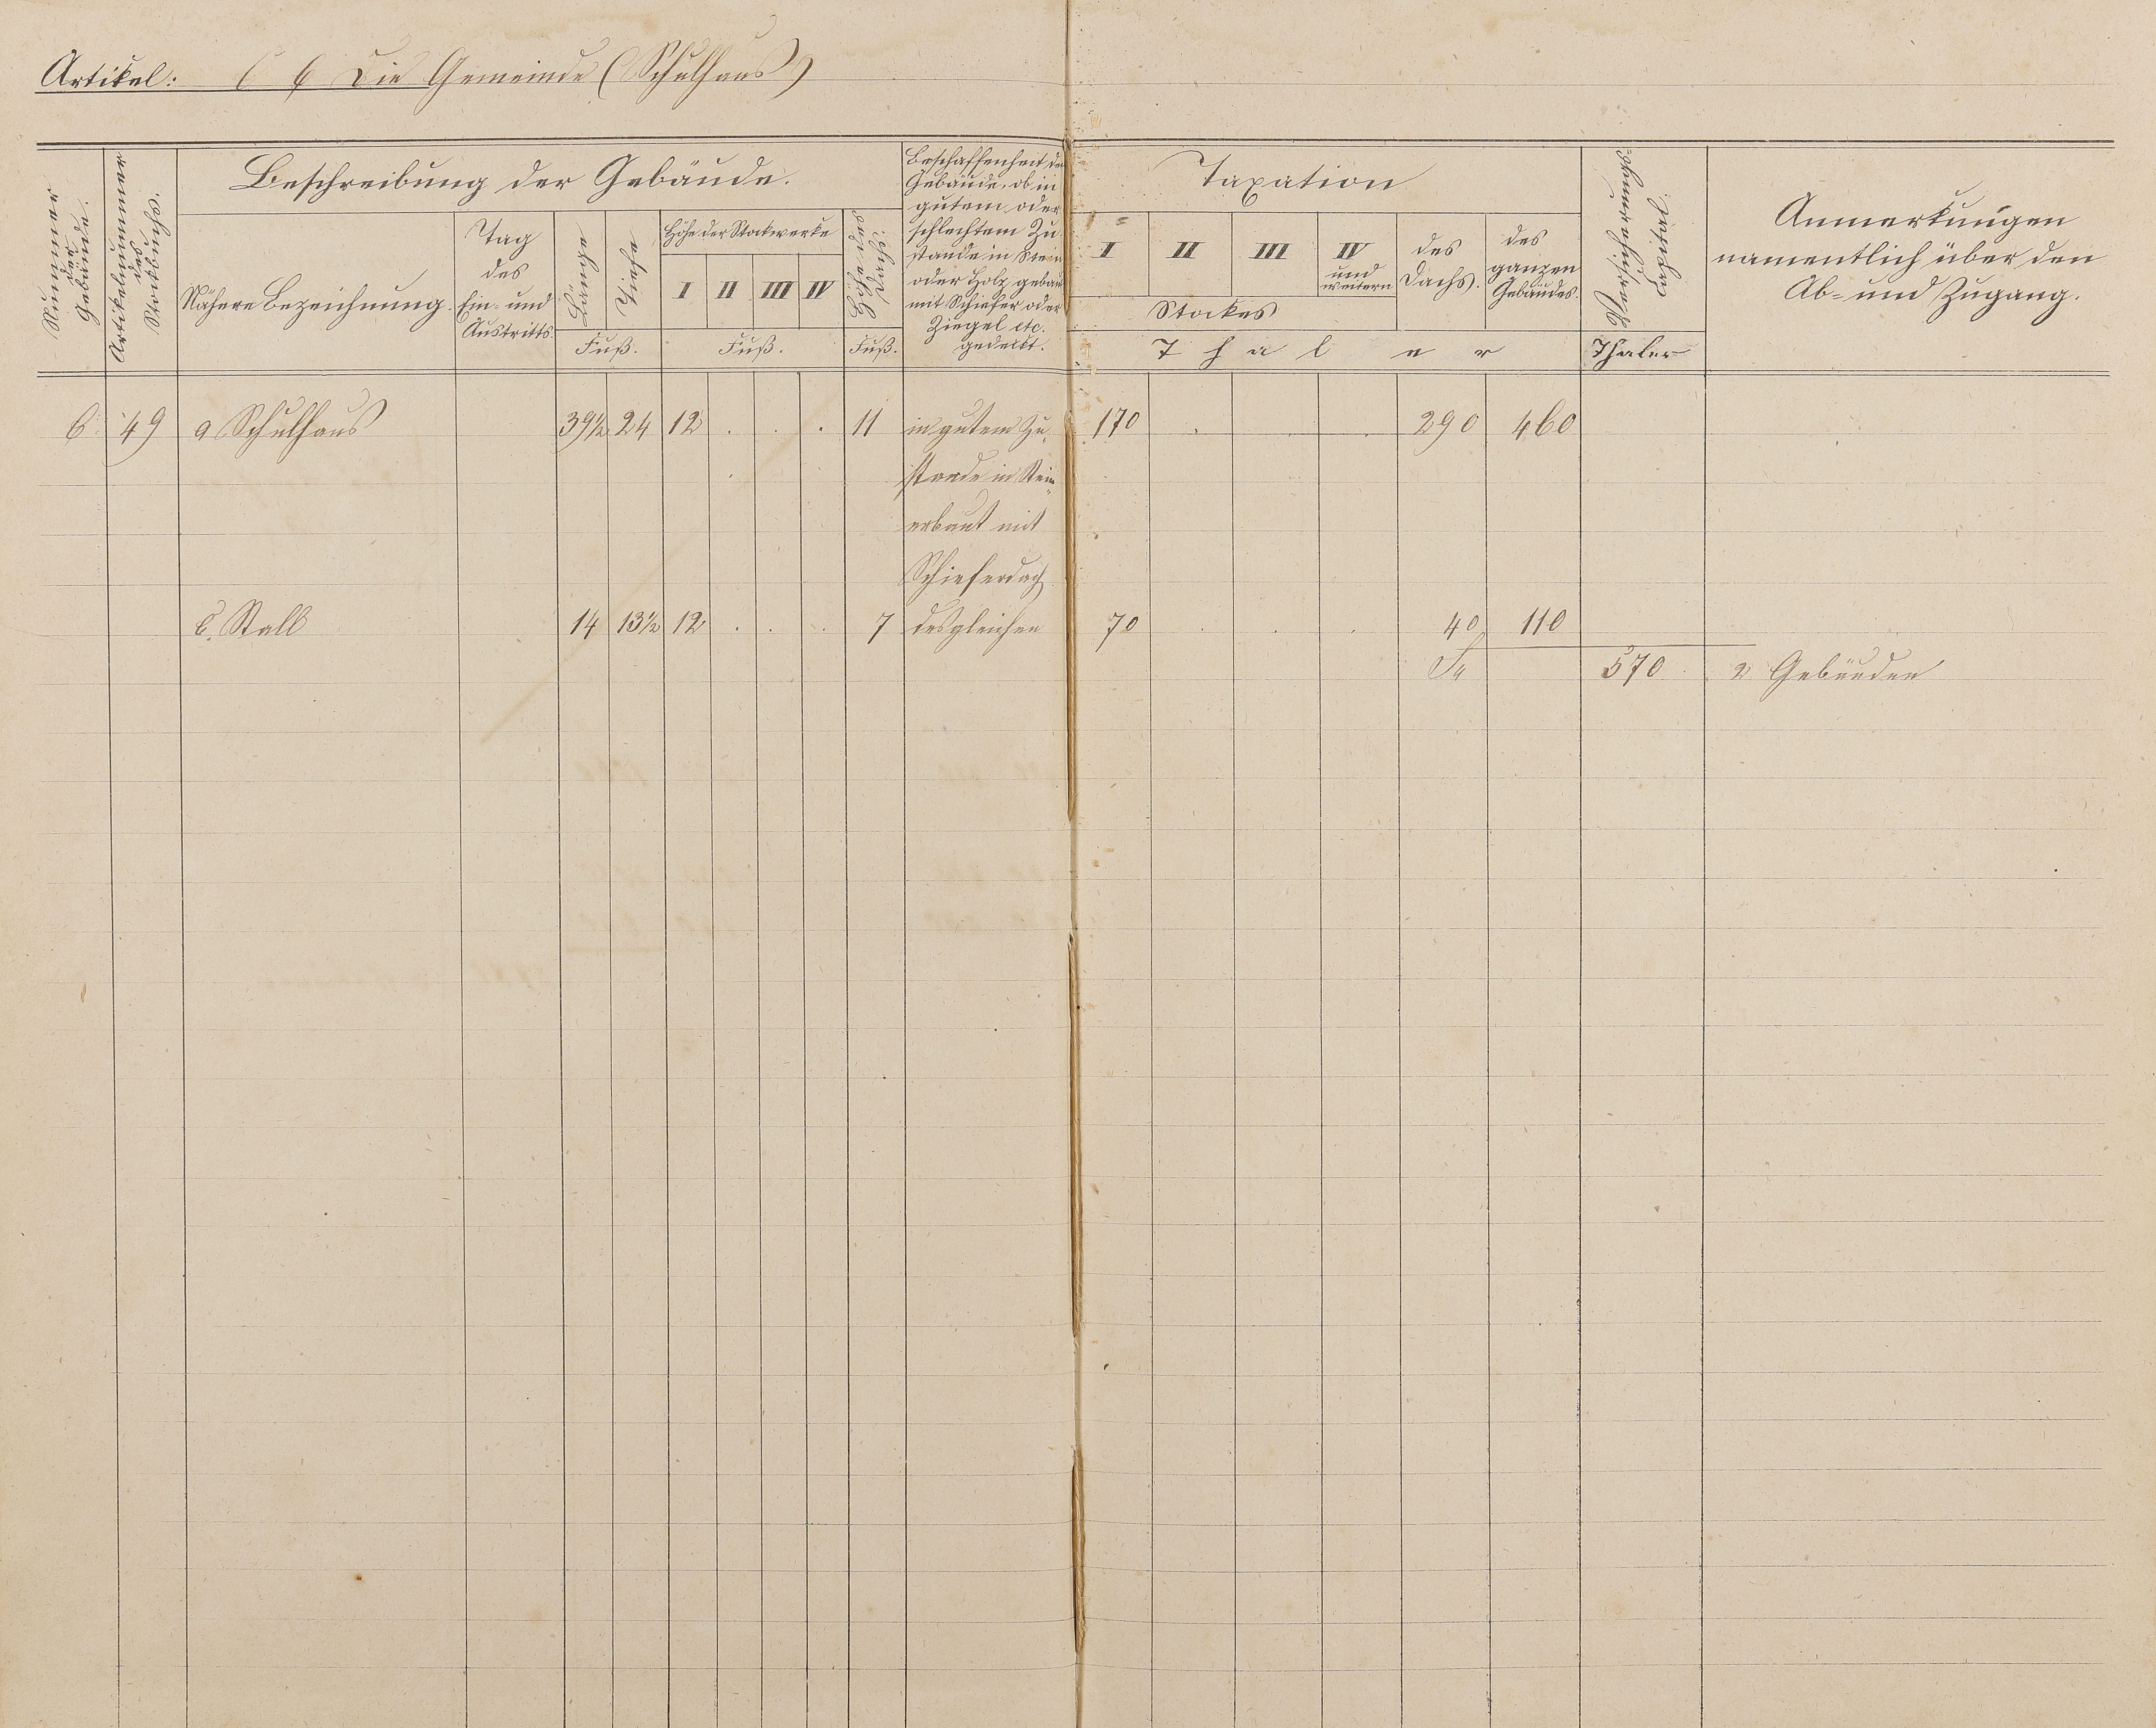 Artikel: 6 Die Gemeinde (Schulhaus)
Nummer der Gebäude.
Artikelnummer des Stockbuchs.
Beschreibung der Gebäude.
Nähere Bezeichnung.
Tag des Ein- und Austritts.
Länge
Tiefe
Fuß.
Höhe der Stockwerke
I II III IV
Fuß.
Höhe des Dachs.
Fuß.
Beschaffenheit der
Gebäude, ob in
gutem oder
schlechtem Zu-
stande in Stein
oder Holz gebaut
mit Schiefer oder
Ziegel etc.
gedeckt.
Taxation
I II III IV und weitern
Stockes
des Dachs.
des ganzen Gebäudes.
Thaler
Versicherungs-
Capital.
Thaler
Anmerkungen
namentlich über den
Ab- und Zugang.
6 49 a Schulhaus 39½ 24 12 . . . 11 in gutem Zu- 170 . . . 290 460
stande in Stein
erbaut mit
Schieferdach
b. Stall 14 13½ 12 . . . 7 desgleichen 70 . . . 40 110
570 2 Gebäuden